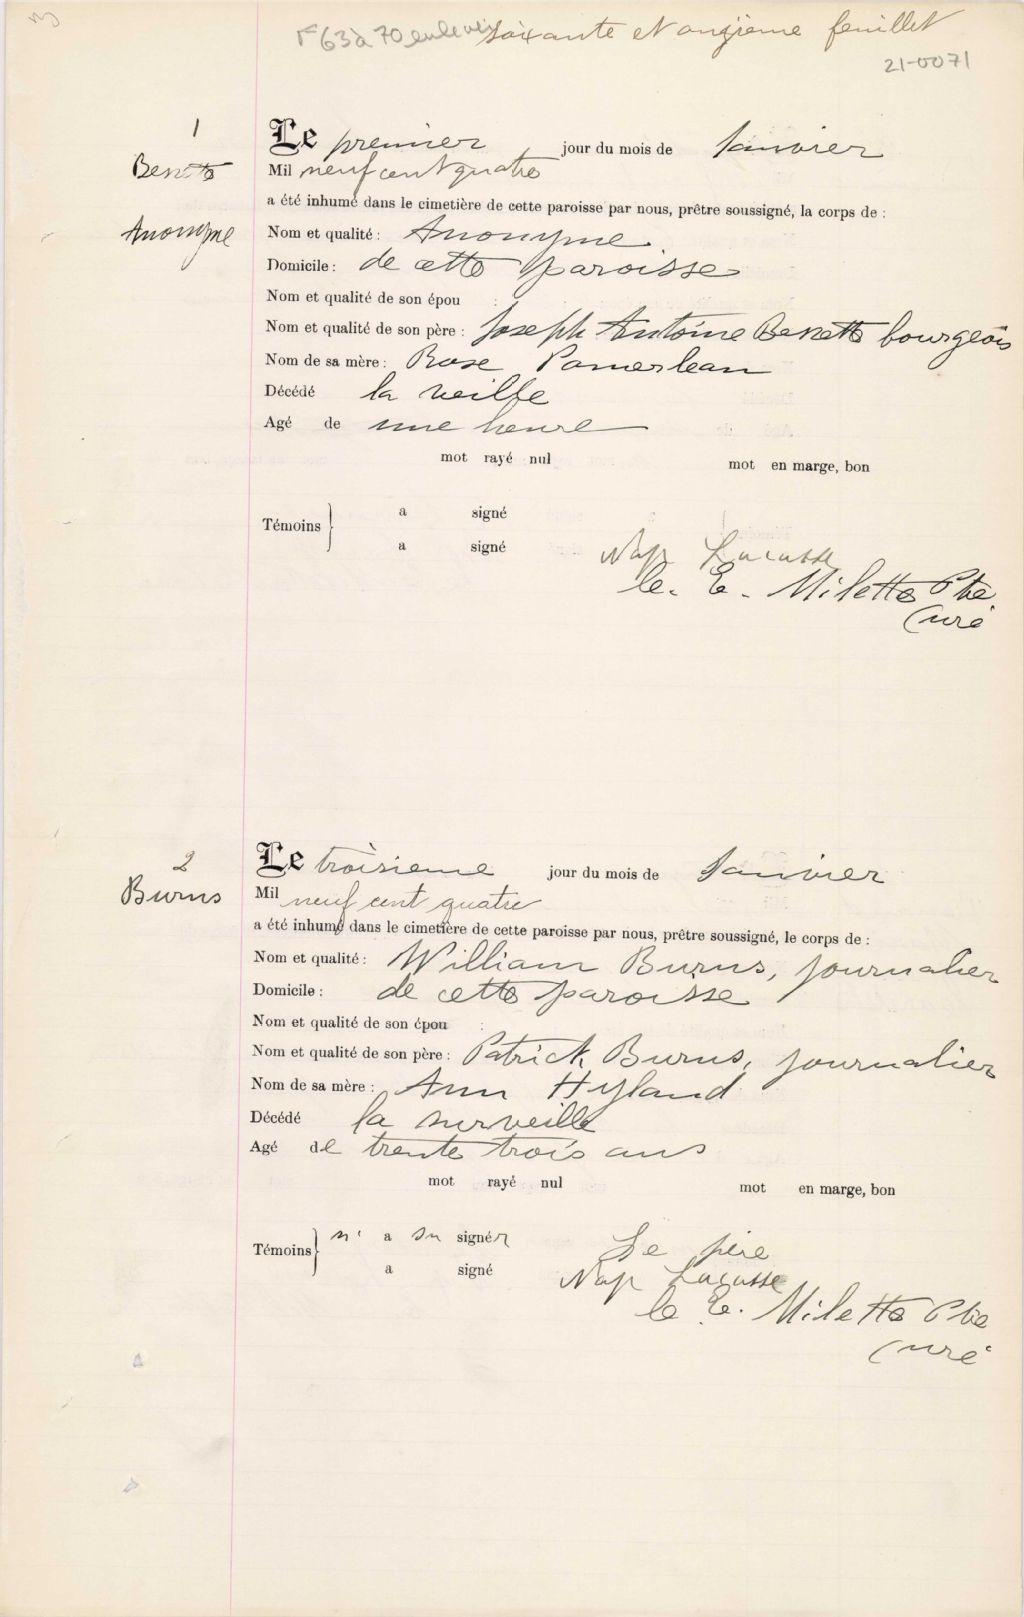 F 63 à 70 enlevés soixante et onzième feuillet
21-0071
1
Benetto
Anonyme
Le premier jour du mois de Janvier
Mil neuf cent quatre
a été inhumé dans le cimetière de cette paroisse par nous, prêtre soussigné, la corps de :
Nom et qualité : Anonyme
Domicile : de cette paroisse
Nom et qualité de son épou :
Nom et qualité de son père : Joseph Antoine Benetto bourgeois
Nom de sa mère : Rose Pomerleau
Décédé la veille
Agé de une heure
mot rayé nul mot en marge, bon
a signé
Témoins }
a signé
Nap Lacasse
E. Milette Ptre
Curé
2
Burns
Le troisieme jour du mois de Janvier
Mil neuf cent quatre
a été inhumé dans le cimetière de cette paroisse par nous, prêtre soussigné, le corps de :
Nom et qualité : William Burns, journalier
Domicile : de cette paroisse
Nom et qualité de son épou :
Nom et qualité de son père : Patrick Burns, journalier
Nom de sa mère : Ann Hyland
Décédé la surveille
Agé de trente trois ans
mot rayé nul mot en marge, bon
n' a su signér Le père
Témoins }
a signé Nap Lacasse
E. Milette Ptre
Curé